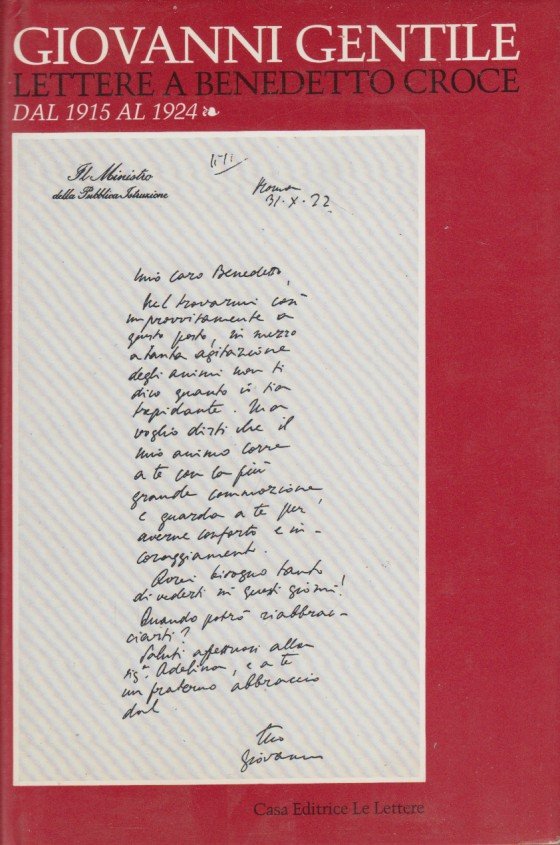 GIOVANNI GENTILE
LETTERE A BENEDETTO CROCE
DAL 1915 AL 1924
Il Ministro
della Pubblica Istruzione
Roma
31.X.22
Mio caro Benedetto,
Nel trovarmi così
improvvisamente a
questo posto, in mezzo
a tanta agitazione
degli animi non ti
dico quanto io sia
trepidante. Ma
voglio dirti che il
mio animo corre
a te con la più
grande commozione
e guarda a te per
averne conforto e in-
coraggiamenti.
Avrei bisogno tanto
di vederti in questi giorni!
Quando potrò riabbrac-
ciarti?
Saluti affettuosi alla
sig.ª Adelina, e a te
un fraterno abbraccio
dal
tuo
Giovanni
Casa Editrice Le Lettere